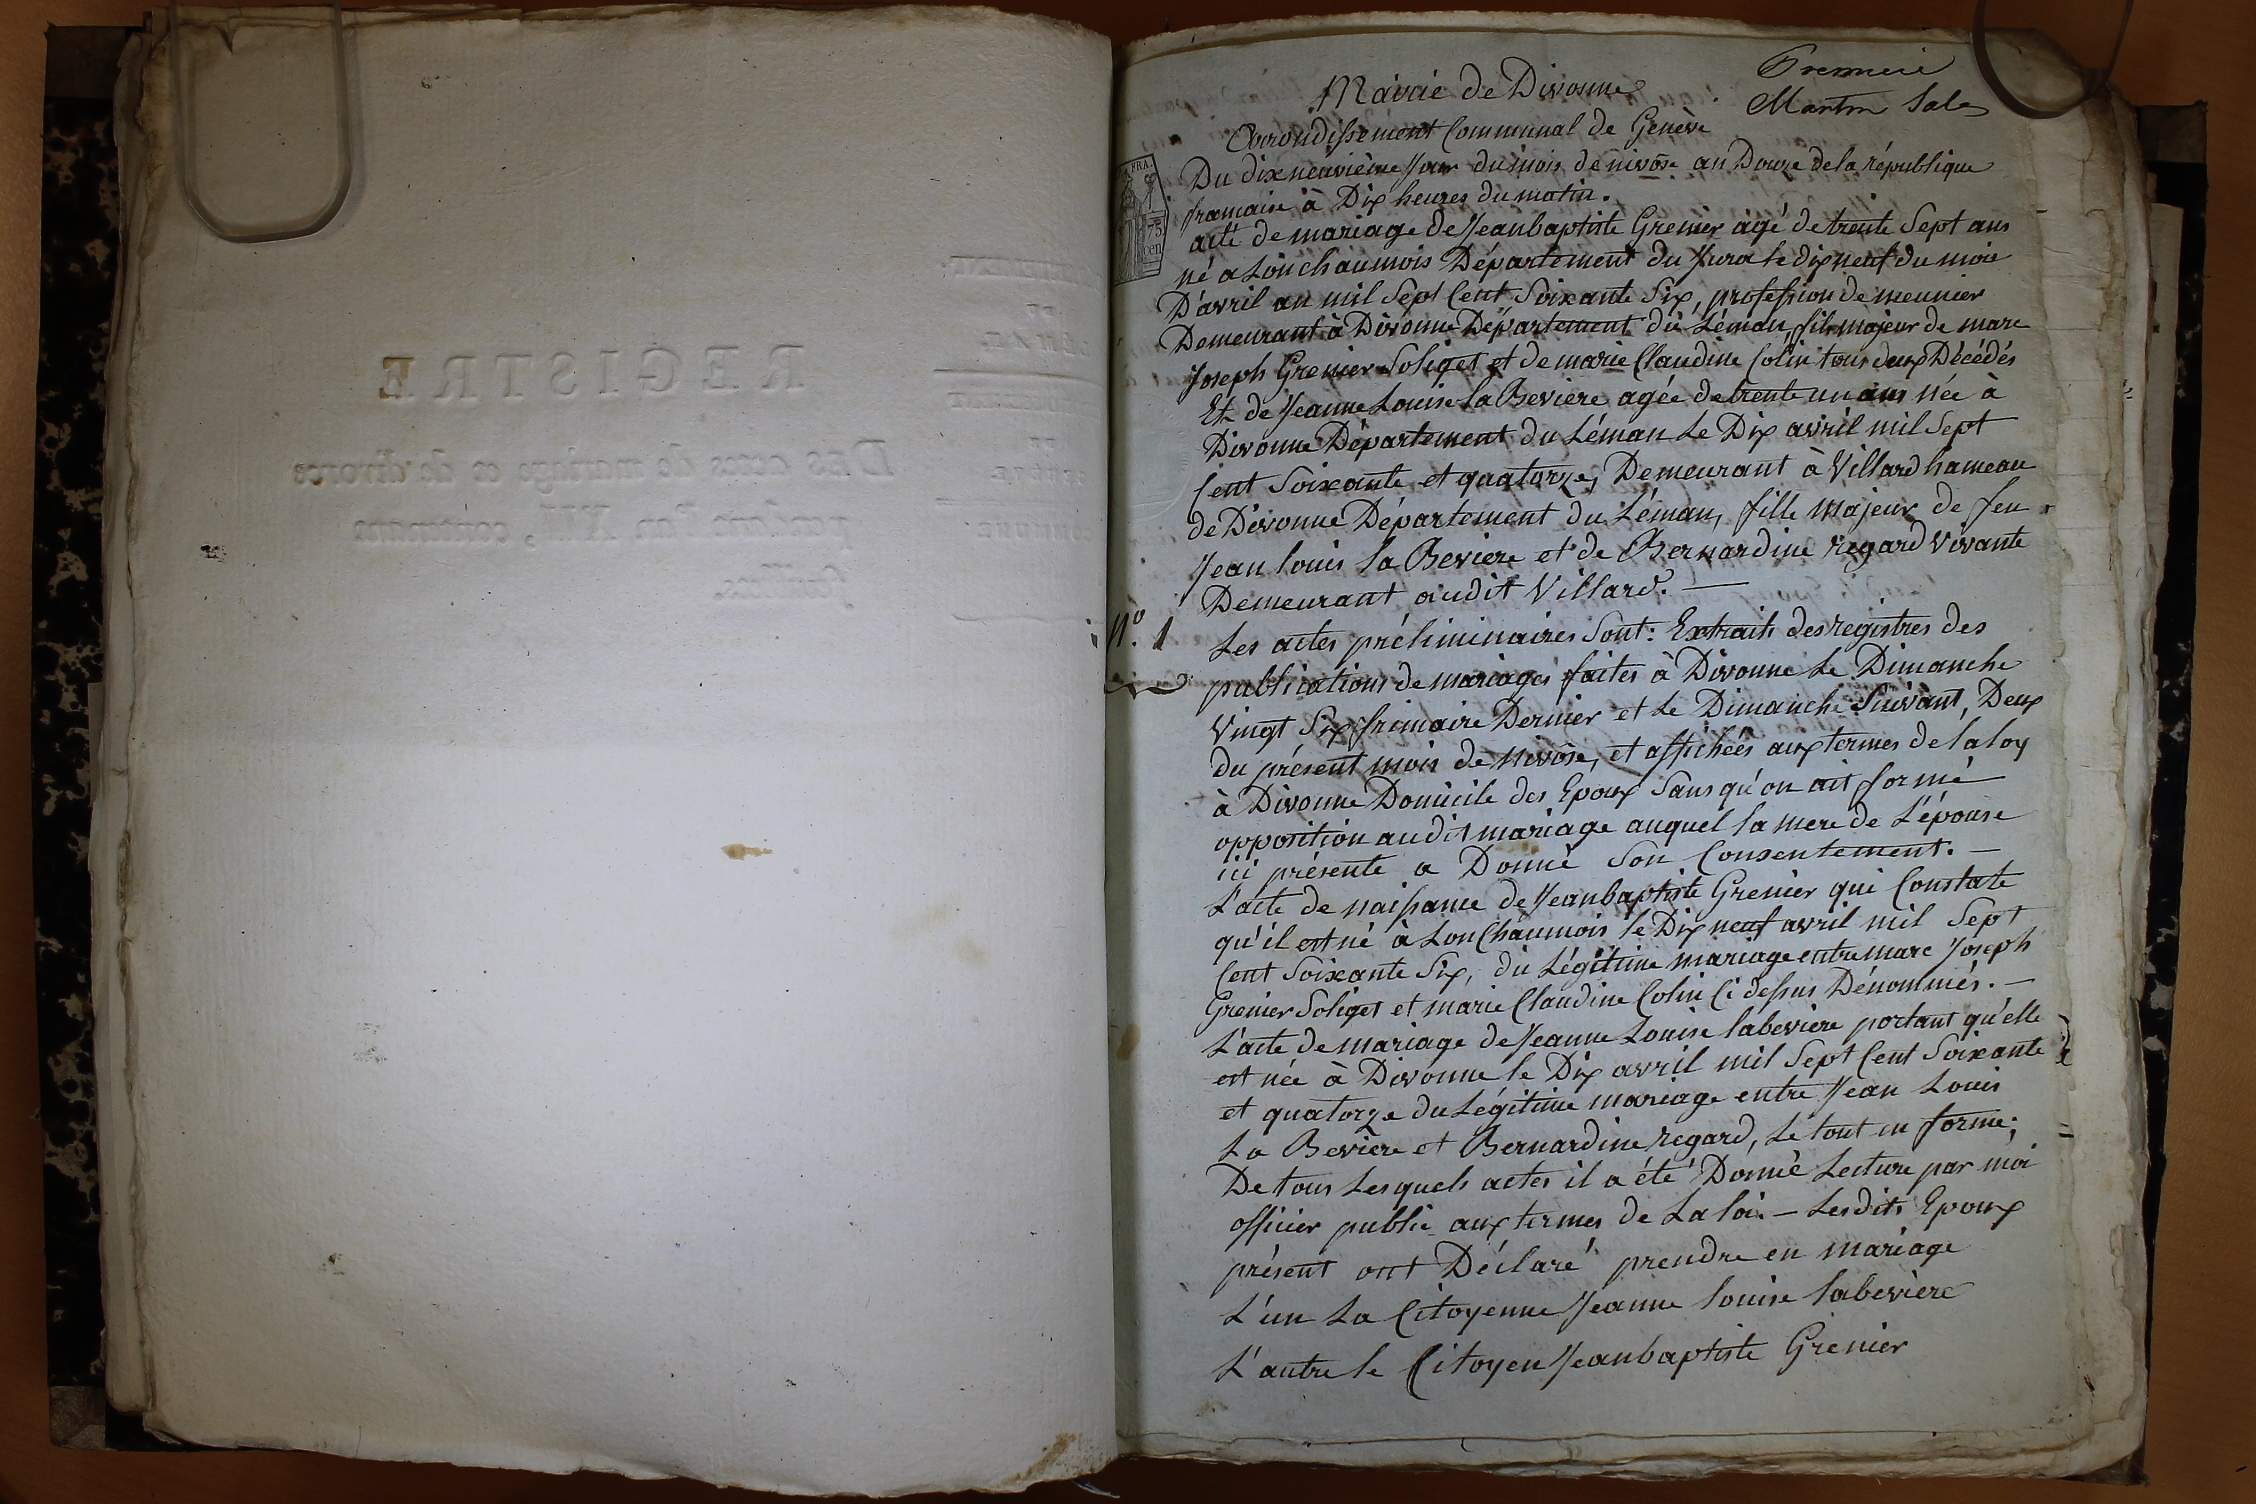 REGISTRE
Des actes de mariage et de divorce
pendant l'an XII, contenant
feuillets.
Premiere
Martin
Mairie de Divonne
Arrondissement Communal de Genève
Du dix neuvième jour du mois de nivôse an Douze de la république
francaise à Dix heures du matin.
acte de mariage de Jeanbaptiste Grenier agé de trente Sept ans
né a Lonchaumois Département du Jura le dix neuf du mois
D'avril an mil Sept Cent Soixante Six, profession de meunier
Demeurant à Divonne Département du Léman, fils majeur de marc
Joseph Grenier Soliget et de marie Claudine Colin tous deux Décédés
Et de Jeanne Louise La Beviere agée de trente un ans née à
Divonne Département du Léman Le Dix avril mil Sept
Cent Soixante et quatorze, Demeurant à Villard hameau
de Divonne Département du Léman, fille Majeur de feu
Jean louis La Beviere et de Bernardine regard vivante
Demeurant audit Villard. —
N.º 1
Les actes préliminaires Sont: Extraits des registres des
publications de mariages faites à Divonne Le Dimanche
vingt Six frimaire Dernier et Le Dimanche Suivant, Deux
du présent mois de nivôse, et affichées aux termes de la loy
à Divonne Domicile des Epoux Sans qu'on ait formé
opposition audit mariage auquel la mere de L'épouse
ici présente a Donné Son Consentement. —
L'acte de naissance de Jeanbaptiste Grenier qui Constate
qu'il est né à LonChaumois le Dix neuf avril mil Sept
Cent Soixante Six, du Légitime mariage entre marc Joseph
Grenier Soliget et marie Claudine Colin Ci dessus Dénommés. —
L'acte de mariage de Jeanne Louise labeviere portant qu'elle
est née à Divonne le Dix avril mil Sept Cent Soixante
et quatorze du Légitime mariage entre Jean Louis
La Beviere et Bernardine regard, Le tout en forme;
De tous Lesquels actes il a été Donné Lecture par moi
officier public aux termes de La loi. — Lesdits Epoux
présent ont Déclaré prendre en mariage
L'un La Citoyenne Jeanne louise labeviere
L'autre le Citoyen Jeanbaptiste Grenier